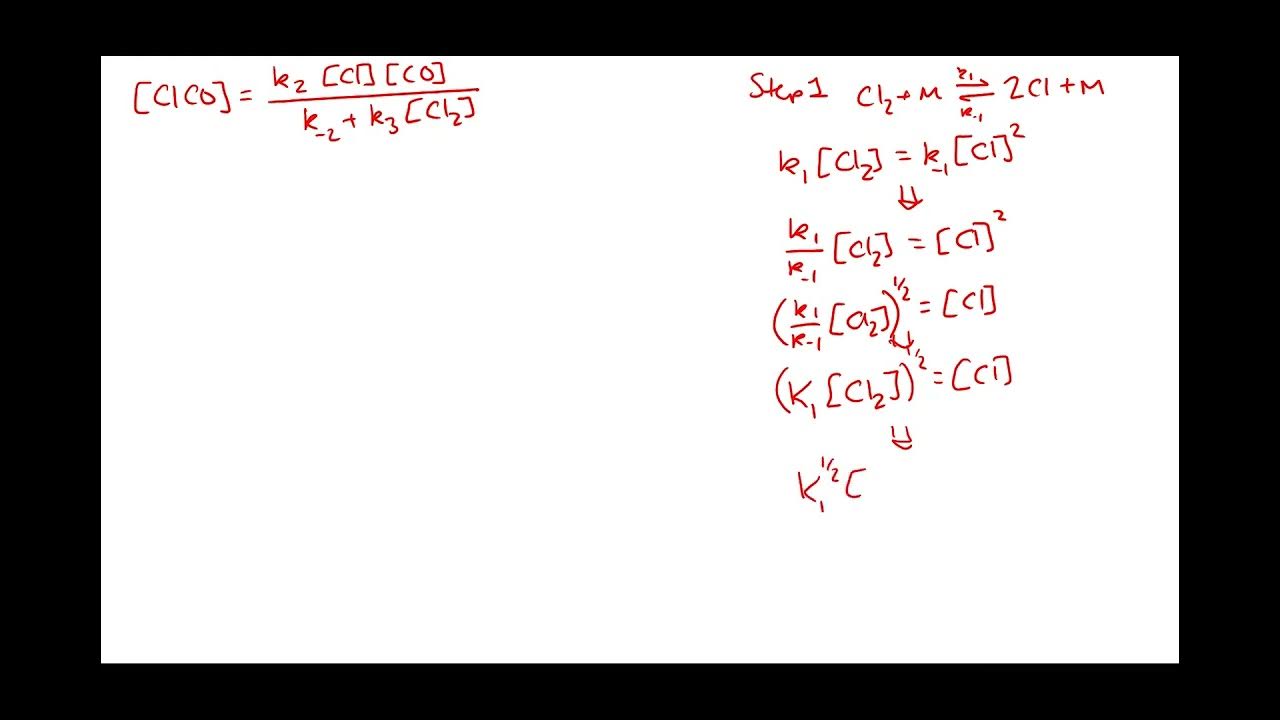 [ClCO] = k₂ [Cl] [CO] / k₋₂ + k₃ [Cl₂]
Step 1 Cl₂ + M k₁ ⇌ k₋₁ 2Cl + M
k₁ [Cl₂] = k₋₁ [Cl]²
⇓
k₁/k₋₁ [Cl₂] = [Cl]²
(k₁/k₋₁ [Cl₂])^1/2 = [Cl]
⇓
(K₁ [Cl₂])^1/2 = [Cl]
⇓
K₁^1/2 [